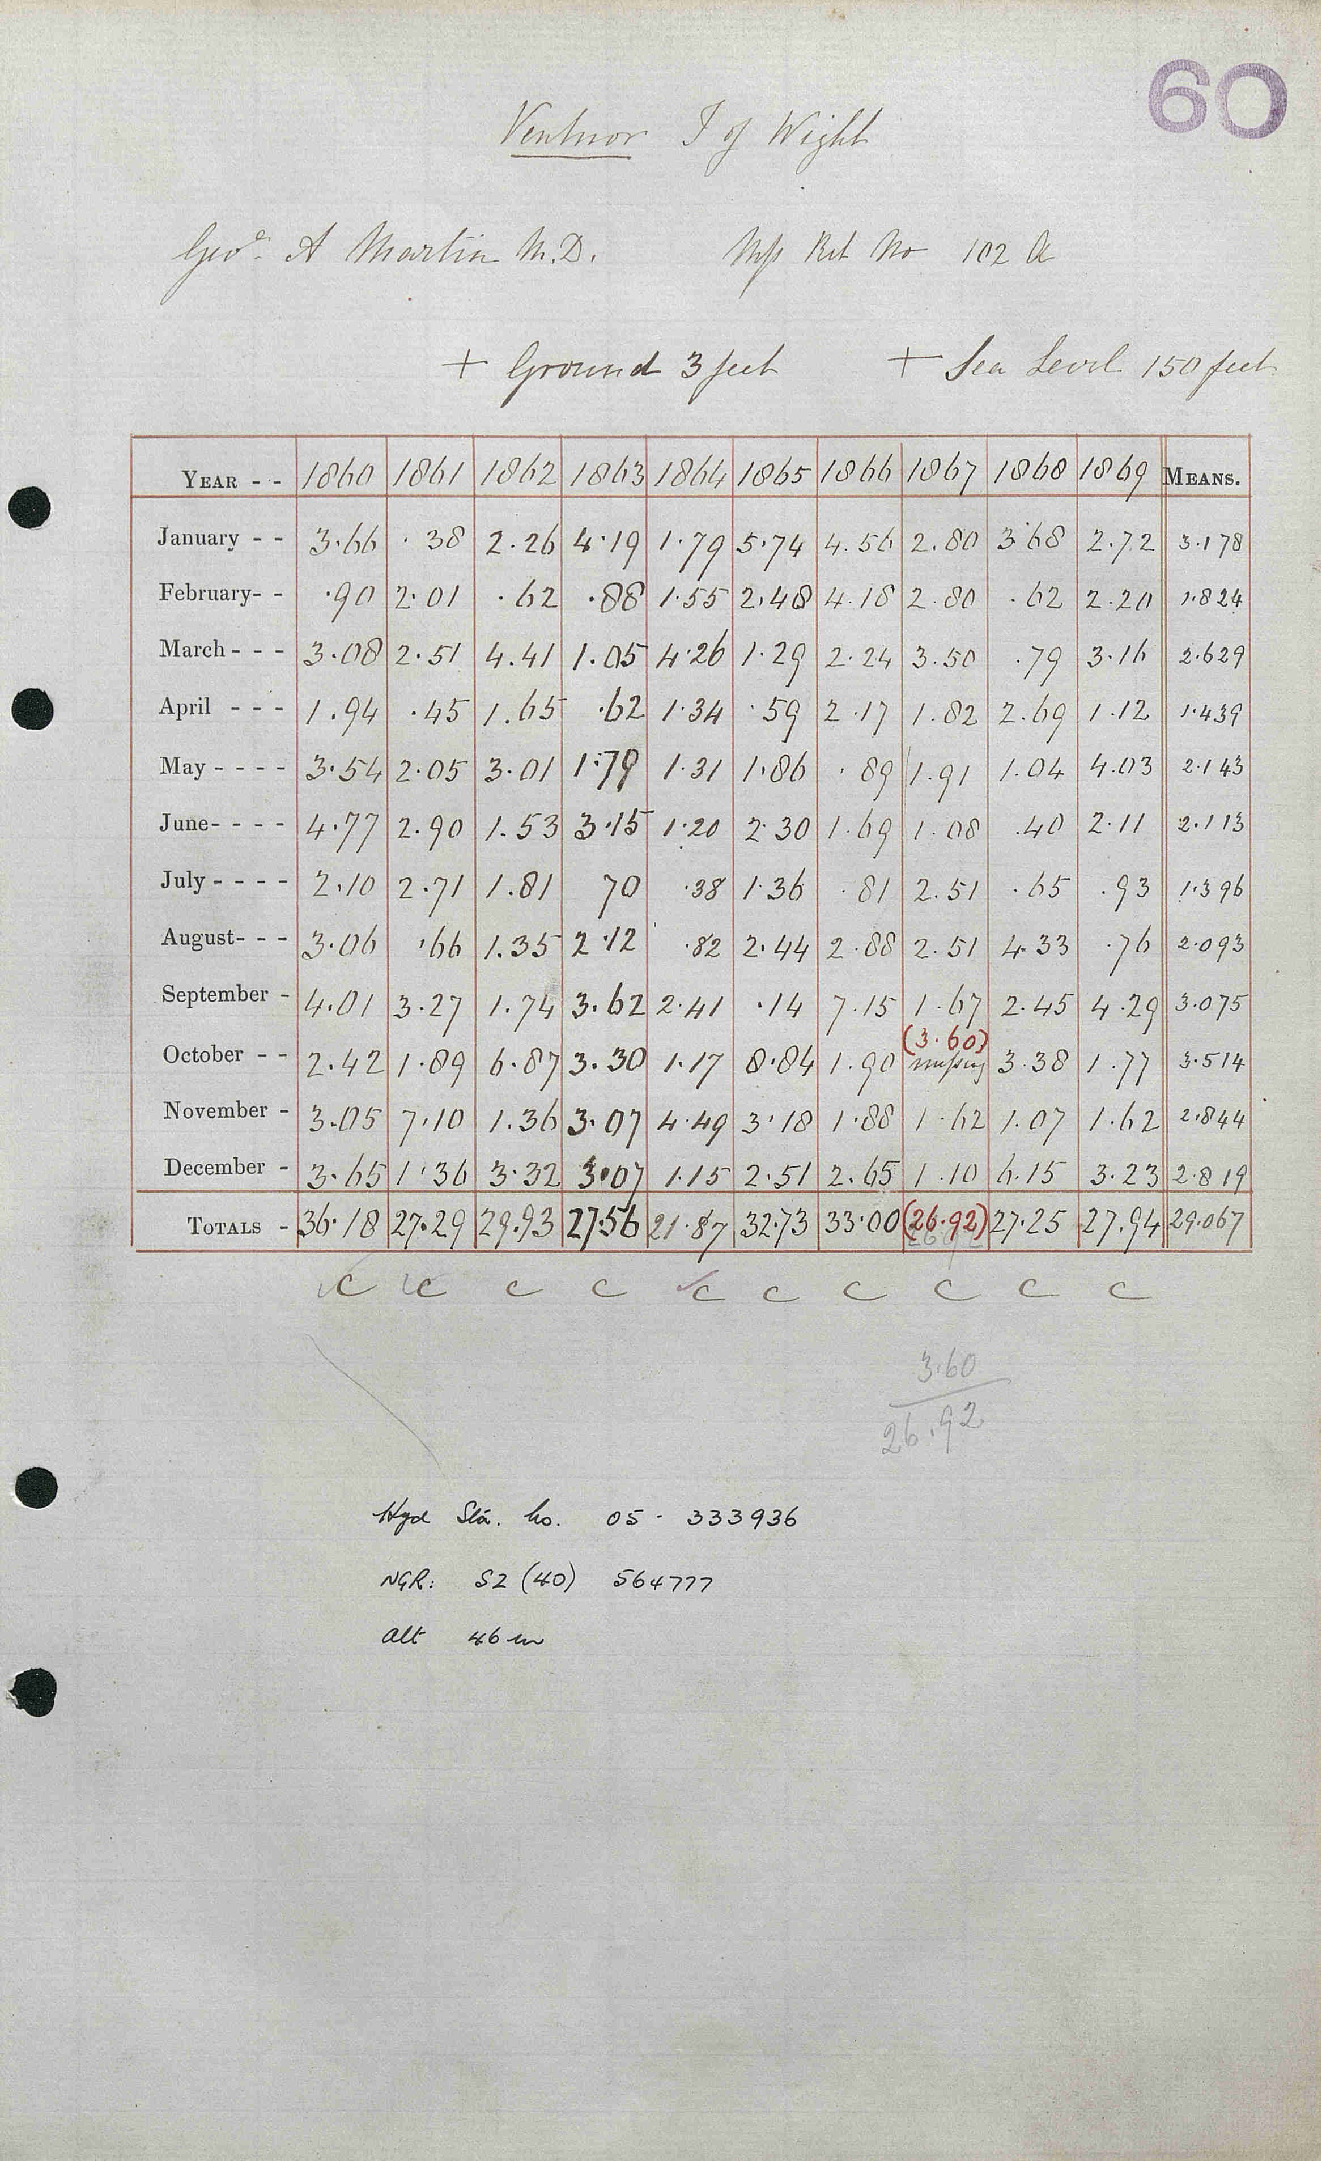 60
Ventnor I of Wight
Geo. A Martin M.D. Mss Ret No 102 a
+ Ground 3 feet + Sea Level 150 feet
YEAR - - 1860 1861 1862 1863 1864 1865 1866 1867 1868 1869 MEANS.
January - - 3.66 .38 2.26 4.19 1.79 5.74 4.56 2.80 3.68 2.72 3.178
February- - .90 2.01 .62 .88 1.55 2.48 4.18 2.80 .62 2.20 1.824
March - - - 3.08 2.51 4.41 1.05 4.26 1.29 2.24 3.50 .79 3.16 2.629
April - - - 1.94 .45 1.65 .62 1.34 .59 2.17 1.82 2.69 1.12 1.439
May - - - - 3.54 2.05 3.01 1.79 1.31 1.86 .89 1.91 1.04 4.03 2.143
June- - - - 4.77 2.90 1.53 3.15 1.20 2.30 1.69 1.08 .40 2.11 2.113
July - - - - 2.10 2.71 1.81 70 .38 1.36 .81 2.51 .65 .93 1.396
August- - - 3.06 .66 1.35 2.12 .82 2.44 2.88 2.51 4.33 .76 2.093
September - 4.01 3.27 1.74 3.62 2.41 .14 7.15 1.67 2.45 4.29 3.075
(3.60)
October - - 2.42 1.89 6.87 3.30 1.17 8.84 1.90 missing 3.38 1.77 3.514
November - 3.05 7.10 1.36 3.07 4.49 3.18 1.88 1.62 1.07 1.62 2.844
December - 3.65 1.36 3.32 3.07 1.15 2.51 2.65 1.10 6.15 3.23 2.819
TOTALS - 36.18 27.29 29.93 27.56 21.87 32.73 33.00 (26.92) 27.25 27.94 29.067
c c c c c c c c c c
3.60
26.92
Hyd Sta. No. 05 - 333936
NGR: SZ (40) 564777
Alt 46 m